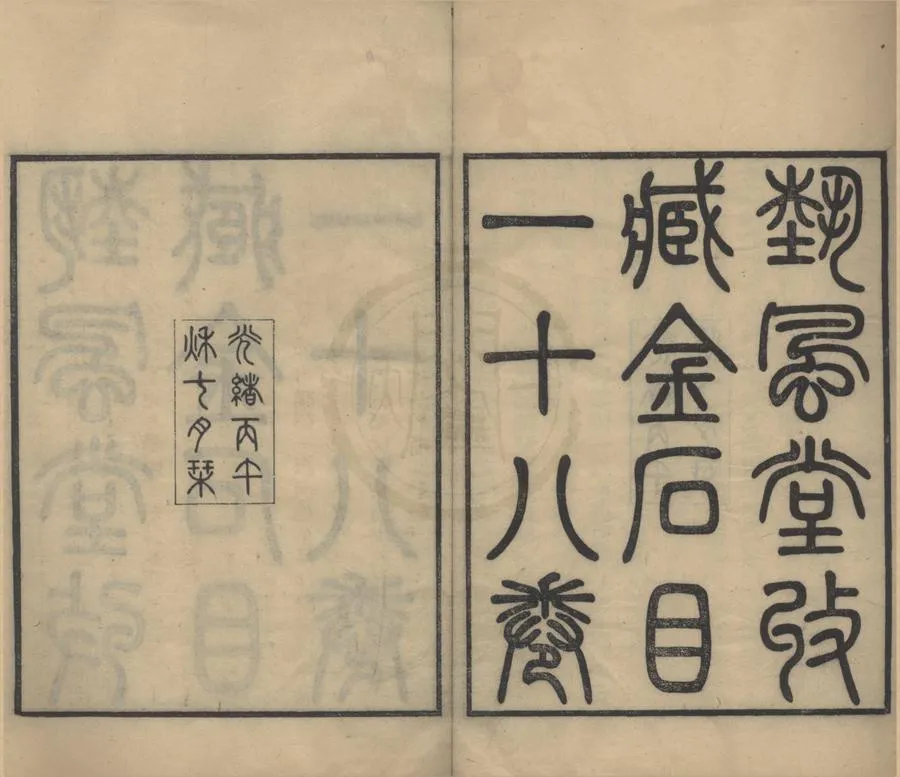 埶風堂攷
臧金石目
一十八卷
光緒丙午
秌七月栞